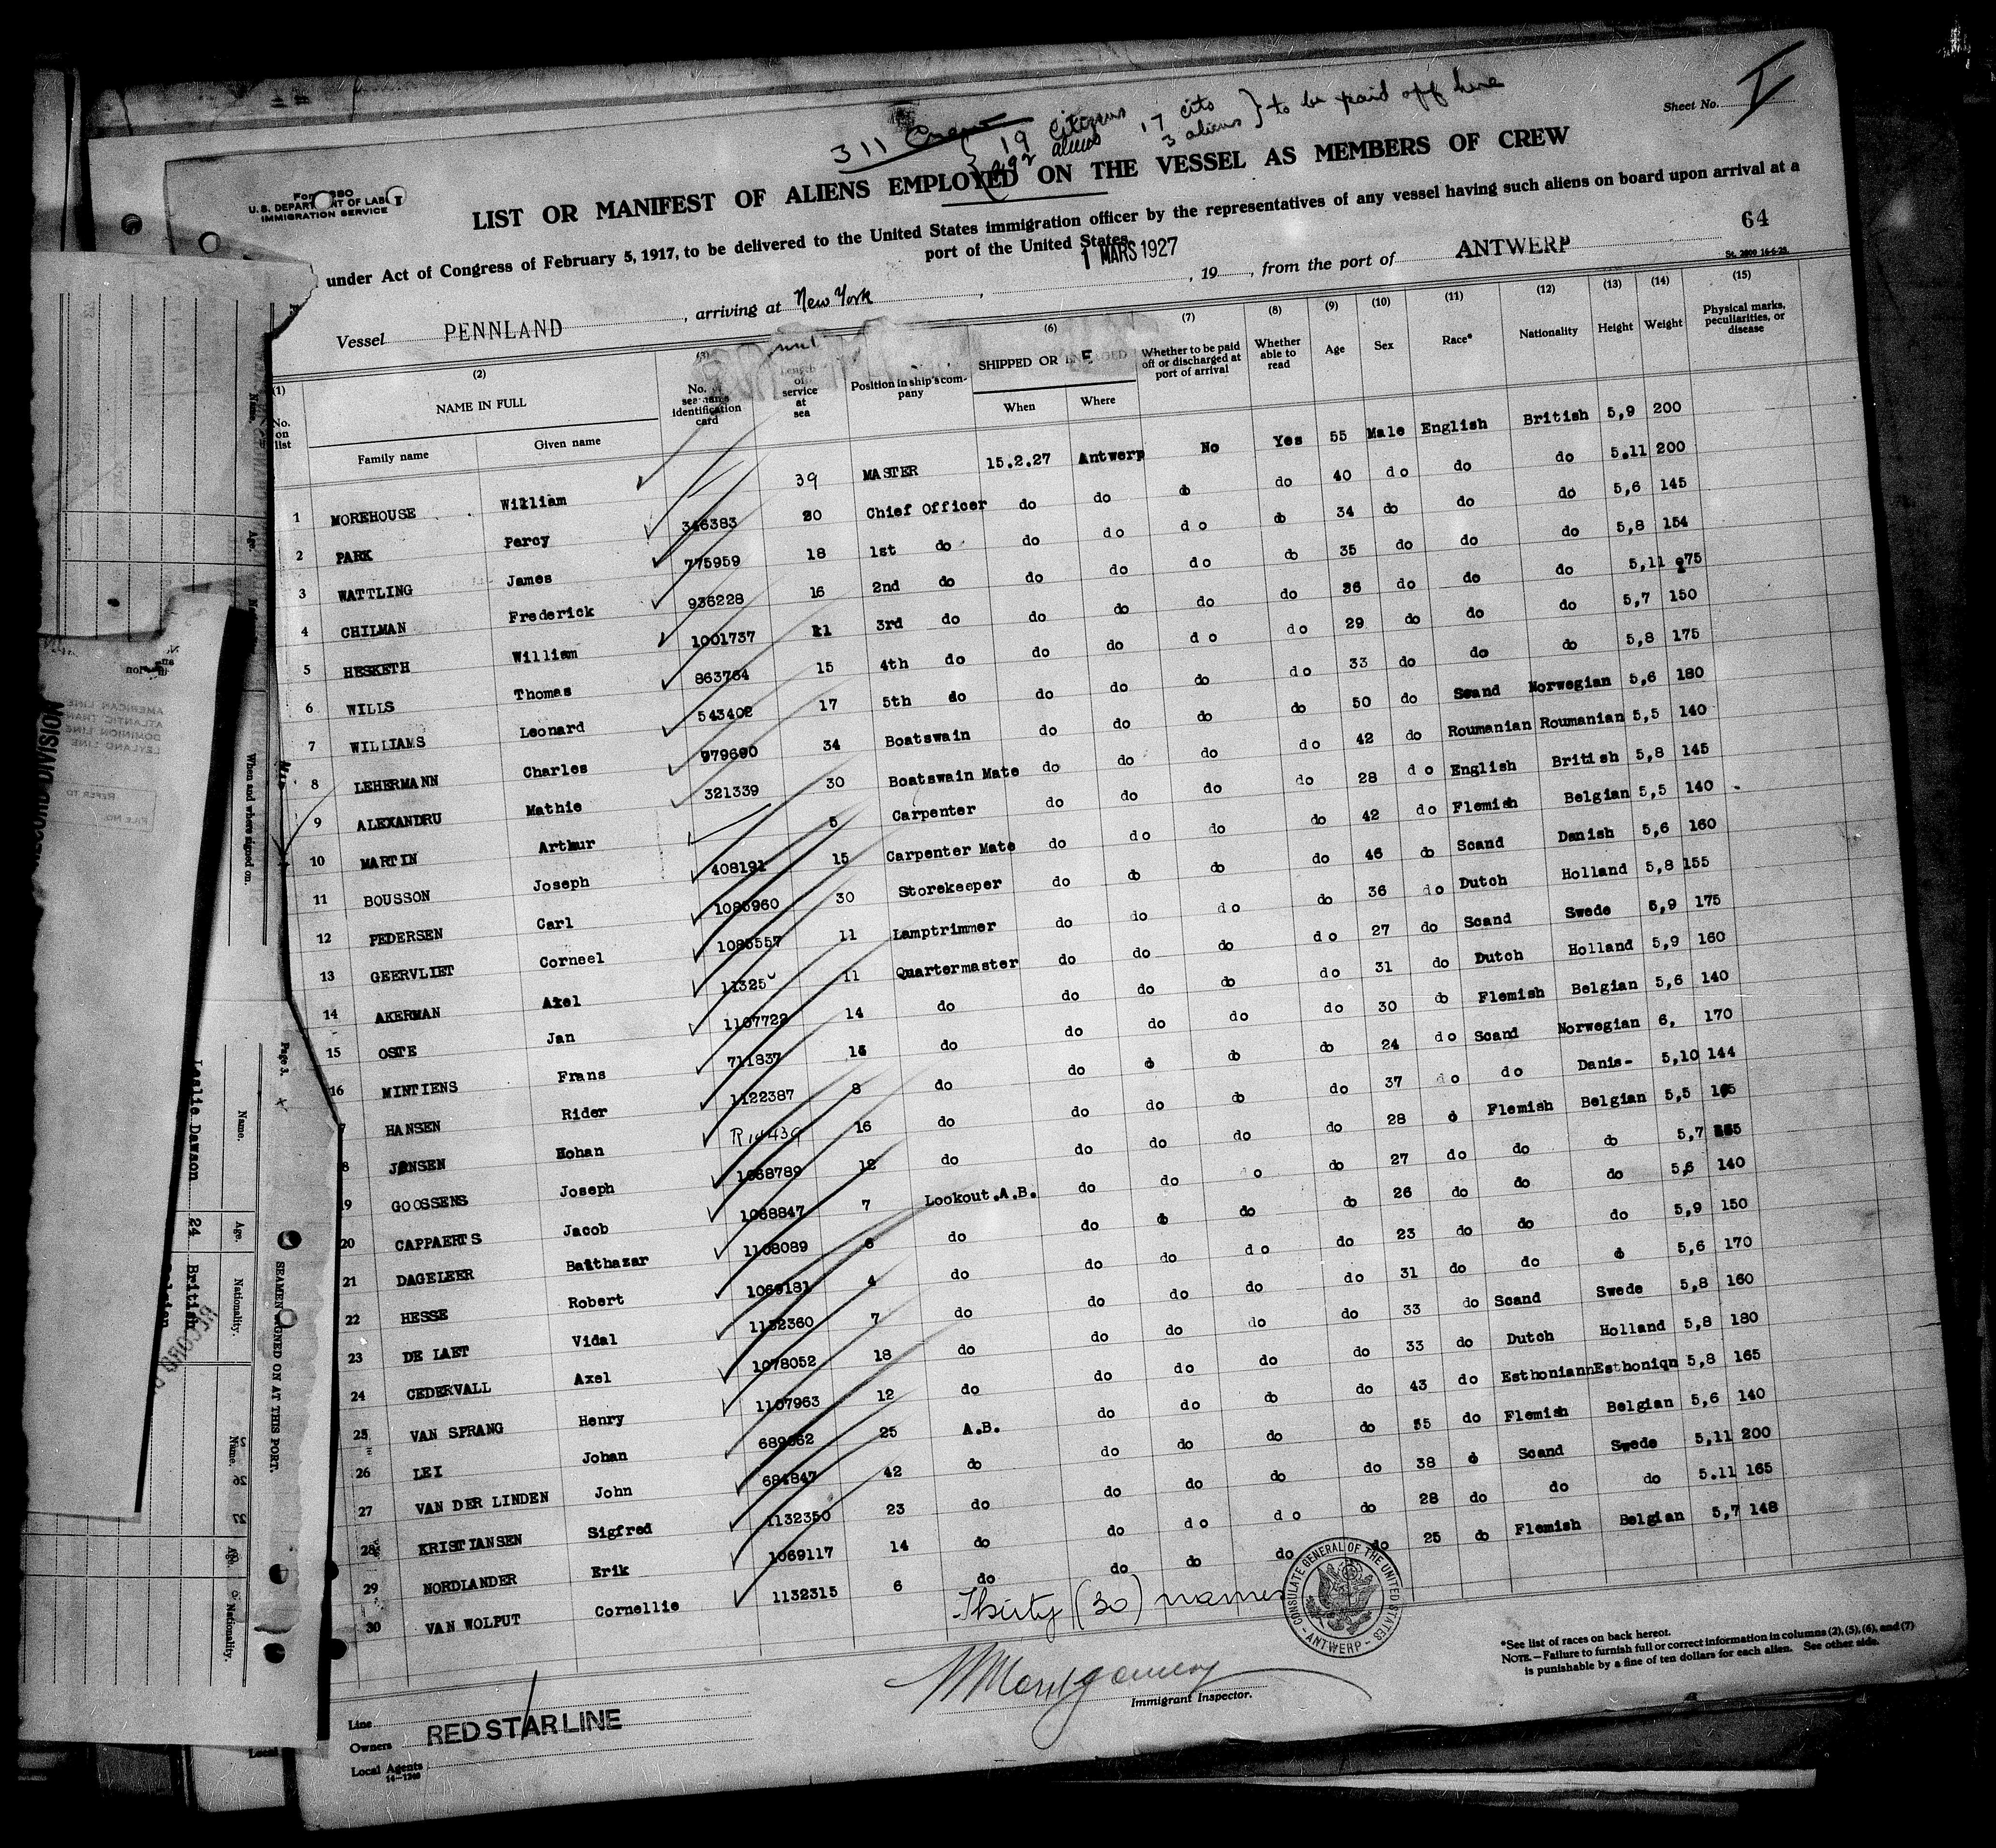 311 Crew { 19 citizens 17 cits } to be paid off here
292 aliens 3 aliens
Sheet No. I
U.S. DEPARTMENT OF LABOR
IMMIGRATION SERVICE
LIST OR MANIFEST OF ALIENS EMPLOYED ON THE VESSEL AS MEMBERS OF CREW
under Act of Congress of February 5, 1917, to be delivered to the United States immigration officer by the representatives of any vessel having such aliens on board upon arrival at a
port of the United States
64
Vessel PENNLAND, arriving at New York, 1 MARS 1927, 19, from the port of ANTWERP
(1) (2) (3) (6) (7) (8) (9) (10) (11) (12) (13) (14) (15)
No. on list NAME IN FULL No. of seaman's identification card Length of service at sea Position in ship's company SHIPPED OR ENGAGED Whether to be paid off or discharged at port of arrival Whether able to read Age Sex Race* Nationality Height Weight Physical marks, peculiarities, or disease
Family name Given name When Where
1 MOREHOUSE William 39 MASTER 15.2.27 Antwerp No Yes 55 Male English British 5,9 200
2 PARK Percy 346383 20 Chief Officer do do do do 40 do do do 5.11 200
3 WATTLING James 775959 18 1st do do do do do 34 do do do 5,6 145
4 CHILMAN Frederick 936228 16 2nd do do do do do 35 do do do 5,8 154
5 HESKETH William 1001737 11 3rd do do do do do 36 do do do 5,11 175
6 WILLS Thomas 863764 15 4th do do do do do 29 do do do 5,7 150
7 WILLIAMS Leonard 543402 17 5th do do do do do 33 do do do 5,8 175
8 LEHERMANN Charles 979690 34 Boatswain do do do do 50 do Scand Norwegian 5,6 180
9 ALEXANDRU Mathie 321339 30 Boatswain Mate do do do do 42 do Roumanian Roumanian 5,5 140
10 MARTIN Arthur 5 Carpenter do do do do 28 do English British 5,8 145
11 BOUSSON Joseph 408191 15 Carpenter Mate do do do do 42 do Flemish Belgian 5,5 140
12 PEDERSEN Carl 1085960 30 Storekeeper do do do do 46 do Scand Danish 5,6 160
13 GEERVLIET Corneel 1085557 11 Lamptrimmer do do do do 36 do Dutch Holland 5,8 155
14 AKERMAN Axel 11 Quartermaster do do do do 27 do Scand Swede 5,9 175
15 OSTE Jan 1107729 14 do do do do do 31 do Dutch Holland 5,9 160
16 MINTIENS Frans 711837 15 do do do do do 30 do Flemish Belgian 5,6 140
17 HANSEN Rider 1122387 8 do do do do do 24 do Scand Norwegian 6, 170
18 JENSEN Hohan R10439 16 do do do do do 37 do do Danis- 5,10 144
19 GOOSSENS Joseph 1068789 12 do do do do do 28 do Flemish Belgian 5,5 165
20 CAPPAERTS Jacob 1068847 7 Lookout.A.B. do do do do 27 do do do 5,7
21 DAGELEER Balthazar 1108089 6 do do do do do 26 do do do 5,6 140
22 HESSE Robert 1069181 4 do do do do do 23 do do do 5,9 150
23 DE LAET Vidal 1132360 7 do do do do do 31 do do do 5,6 170
24 CEDERVALL Axel 1078052 18 do do do do do 33 do Scand Swede 5,8 160
25 VAN SPRANG Henry 1107963 12 do do do do do 33 do Dutch Holland 5,8 180
26 LEI Johan 689662 25 A.B. do do do do 43 do Esthoniann Esthoniqn 5,8 165
27 VAN DER LINDEN John 684847 42 do do do do do 55 do Flemish Belgian 5,6 140
28 KRISTIANSEN Sigfred 1132350 23 do do do do do 38 do Scand Swede 5,11 200
29 NORDLANDER Erik 1069117 14 do do do do do 28 do do do 5.11 165
30 VAN WOLPUT Cornellie 1132315 6 do do do do do 25 do Flemish Belgian 5,7 148
Thirty (30) names
CONSULATE GENERAL OF THE UNITED STATES - ANTWERP -
Montgomery
Immigrant Inspector.
*See list of races on back hereof.
NOTE.—Failure to furnish full or correct information in columns (2), (5), (6), and (7)
is punishable by a fine of ten dollars for each alien. See other side.
Line
Owners RED STAR LINE
Local Agents
14-1240
Page 3.
SEAMEN SIGNED ON AT THIS PORT.
Name. Age. Nationality.
When and where signed on.
Leslie Dawson 24 British
AMERICAN LINE
DOMINION LINE
LEYLAND LINE
REFER TO
FILE NO.
RECORD DIVISION